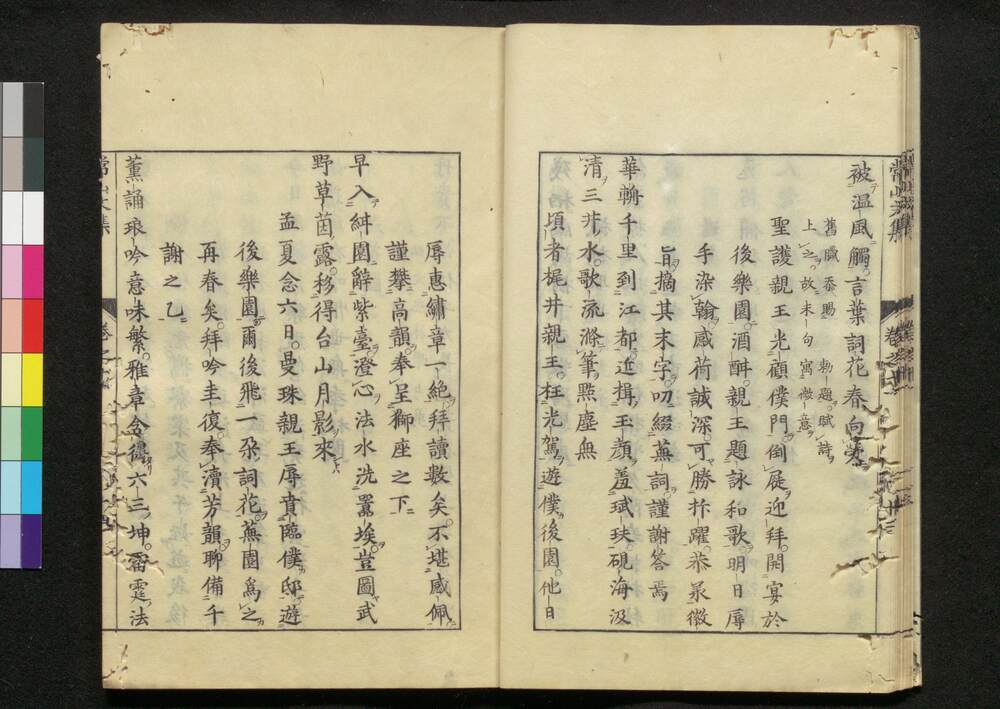 被温風觸言葉詞花春向榮
舊臘忝賜 勅題賦詩
上之故末句寓微意
聖護親王光顧僕門倒屣迎拜開宴於
後樂園酒酣親王題詠和歌明日辱
手染翰感荷誠深可勝抃躍恭泉徽
旨摘其末字叨綴蕪詞謹謝答焉
華輈千里到江都近揖玉顔羞珷玞硯海汲
清三井水歌流滌筆點塵無
頃者梶井親王枉光駕遊僕後園他日
辱惠繡章一絶拜讀數矣不堪感佩
謹攀高韻奉呈獅座之下
早入緗園辭紫臺澄心法水洗囂埃豈圖武
野草茵露移得台山月影來
孟夏念六日曼珠親王辱賁臨僕邸遊
後樂園爾後飛一朶詞花蕪園爲之
再春矣拜吟圭復奉瀆芳韻聊備千
謝之乙
薫誦琅吟意味繁雅章兼得六三坤雷霆法
常山文集
卷之